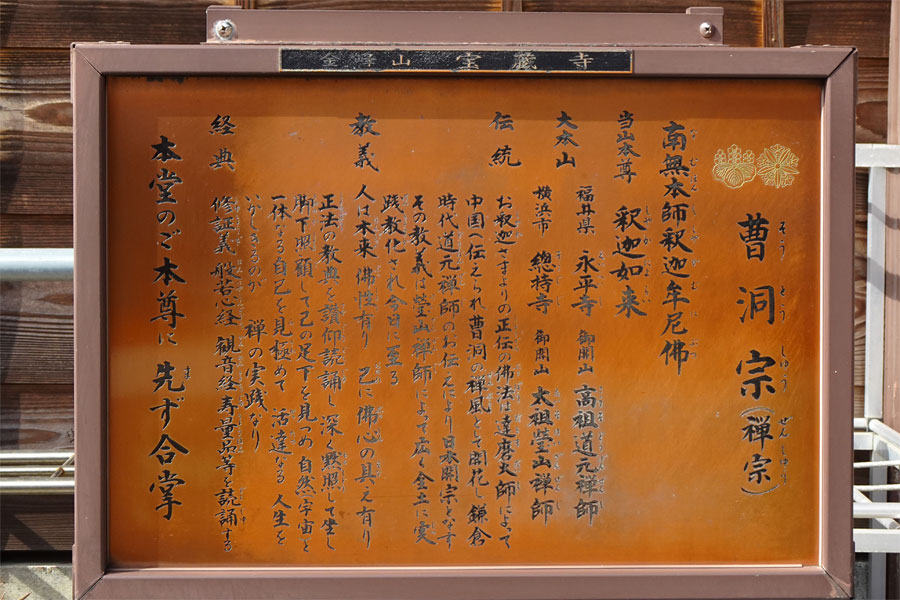 曹洞宗(禅宗)
南無本師釈迦牟尼佛
当山本尊 釈迦如来
大本山 福井県 永平寺 御開山 高祖道元禅師
横浜市 總持寺 御開山 太祖瑩山禅師
伝統 お釈迦さまよりの正伝の佛法は達磨大師によって
中国へ伝えられ曹洞の禅風として開花し鎌倉
時代道元禅師のお伝えにより日本開宗となす
その教義は瑩山禅師によって広く全土に実
践教化され今日に至る
教義 人は本来佛性有り 己に佛心の具え有り
正法の教典を讃仰読誦し深く黙照して坐し
脚下照顧して己の足下を見つめ自然宇宙と
一体なる自己を見極めて 活達なる人生を
いかしきるのが 禅の実践なり
経典 修証義 般若心経 観音経 寿量品等を読誦する
本堂のご本尊に 先ず合掌